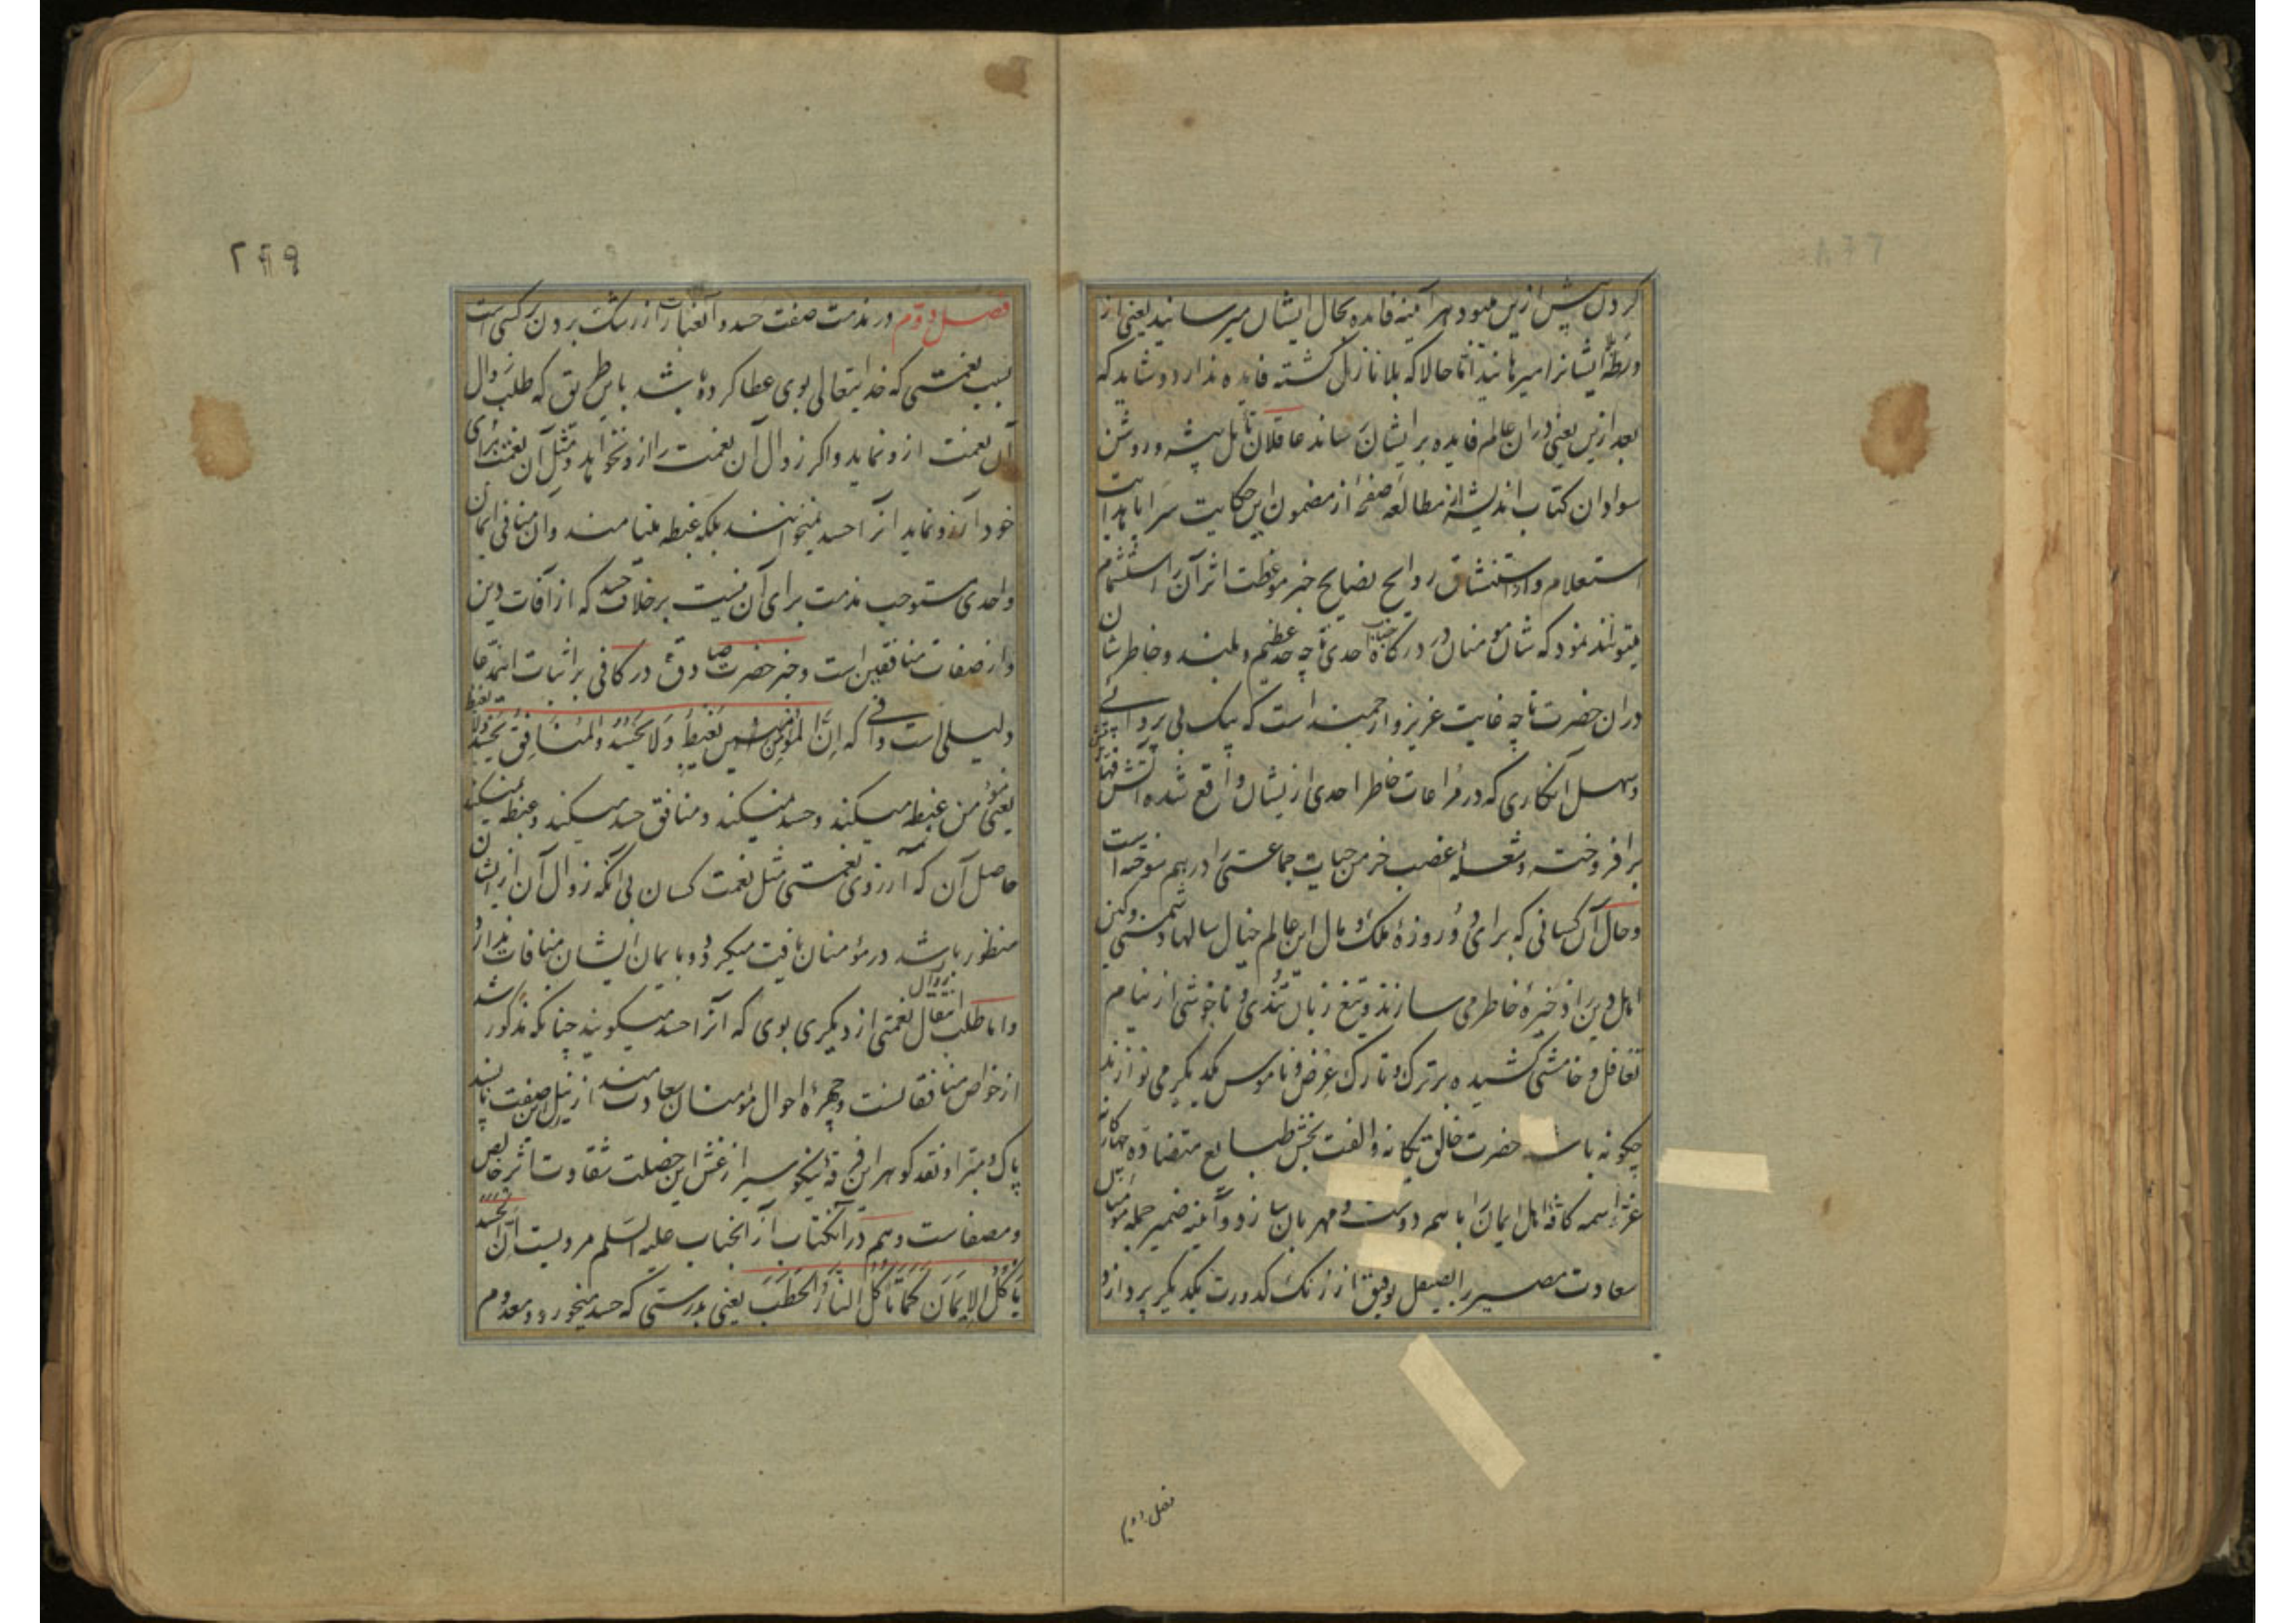 کردن پیش ازین میبود هر آینه فایده بحال ایشان میرسانید یعنی از
ورطهٔ بلا ایشانرا میرهانید اما حالا که بلا نازل کشته فایده ندارد و شاید که
بعد ازین یعنی دران عالم فایده بر ایشان رساند عاقلان تأمل پیشه و روشن
سوادان کتاب اندیشه از مطالعه صفحهٔ از مضمون این حکایت سراپا هدایت
استعلام و استنشاق روایح نصایح خبر موعظت اثر آن را استشمام
میتوانند نمود که شان مومنان در درکاه جناب احدی تا چه حد عظیم و بلند و خاطر شان
دران حضرت تا چه غایت عزیز و ارجمند است که بیک بی پروائی
و سهل انکاری که در مراعات خاطر احدی ازیشان واقع شده آتش قهر
برافروخته و شعلهٔ غضب خرمن حیات جماعتی را درهم سوخته است
و حال آن کسانی که برای دو روزهٔ ملک و مال این عالم خیال سالها دشمنی و کین
اهل دین را ذخیرهٔ خاطر می سازند و تیغ زبان تندی و ناخوشی از نیام
تغافل و خامشی کشیده بر ترک و تارک عرض و ناموس یکدیکر می نوازند
چکونه باشد حضرت خالق یکانه و الفت بخش طبایع متضادهٔ چهارکانه
عز اسمه کافهٔ اهل ایمان را باهم دوست و مهربان سازد و آینه ضمیر جمله مومنان
سعادت مصیر را بصیقل توفیق از زنک کدورت یکدیکر پردازد
فصل دوم
۲۶۹
فصل دوم در مذمت صفت حسد و آن عبارت از رشک بردن بر کسی است
بسبب نعمتی که خدایتعالی بوی عطا کرده باشد باین طریق که طلب زوال
آن نعمت ازو نماید و اکر زوال آن نعمت را ازو نخواهد و مثل آن نعمت برای
خود آرزو نماید آنرا حسد نمیخوانند بلکه غبطه مینامند و آن منافی ایمان
واحدی مستوجب مذمت برای آن نیست برخلاف حسد که از آفات دین
و از صفات منافقین است و خبر حضرت صادق در کافی بر اثبات این مدعا
دلیلی است وافی که اِنَّ المُؤمِنَ یَغبِطُ وَلا یَحسُدُ وَالمُنافِقُ یَحسُدُ ولا یغبط
یعنی مؤمن غبطه میکند و حسد نمیکند و منافق حسد میکند و غبطه نمیکند
حاصل آن که آرزوی نعمتی مثل نعمت کسان بی آنکه زوال آن از ایشان
منظور باشد در مؤمنان یافت میکردد و با ایمان ایشان منافات ندارد
و اما طلب انتقال بزوال نعمتی از دیکری بوی که آنرا حسد میکویند چنانکه مذکور شد
از خواص منافقانست و چهرهٔ احوال مؤمنان سعادت مند از نیل این صفت ناپسند
پاک و مبرا و نقد کوهر این فرقهٔ نیکو سیر از غش این خصلت شقاوت اثر خالص
و مصفاست و هم در آن کتاب از آنجناب علیه السلم مرویست اِنَّ الحَسَدَ
یَاکُلُ الاِیمَانَ کَمَا تَاکُلُ النَّارُ الحَطَبَ یعنی بدرستی که حسد میخورد و معدوم